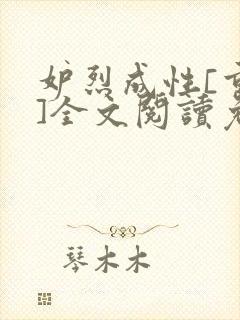 妒烈成性[重
]全文閱讀
琴木木